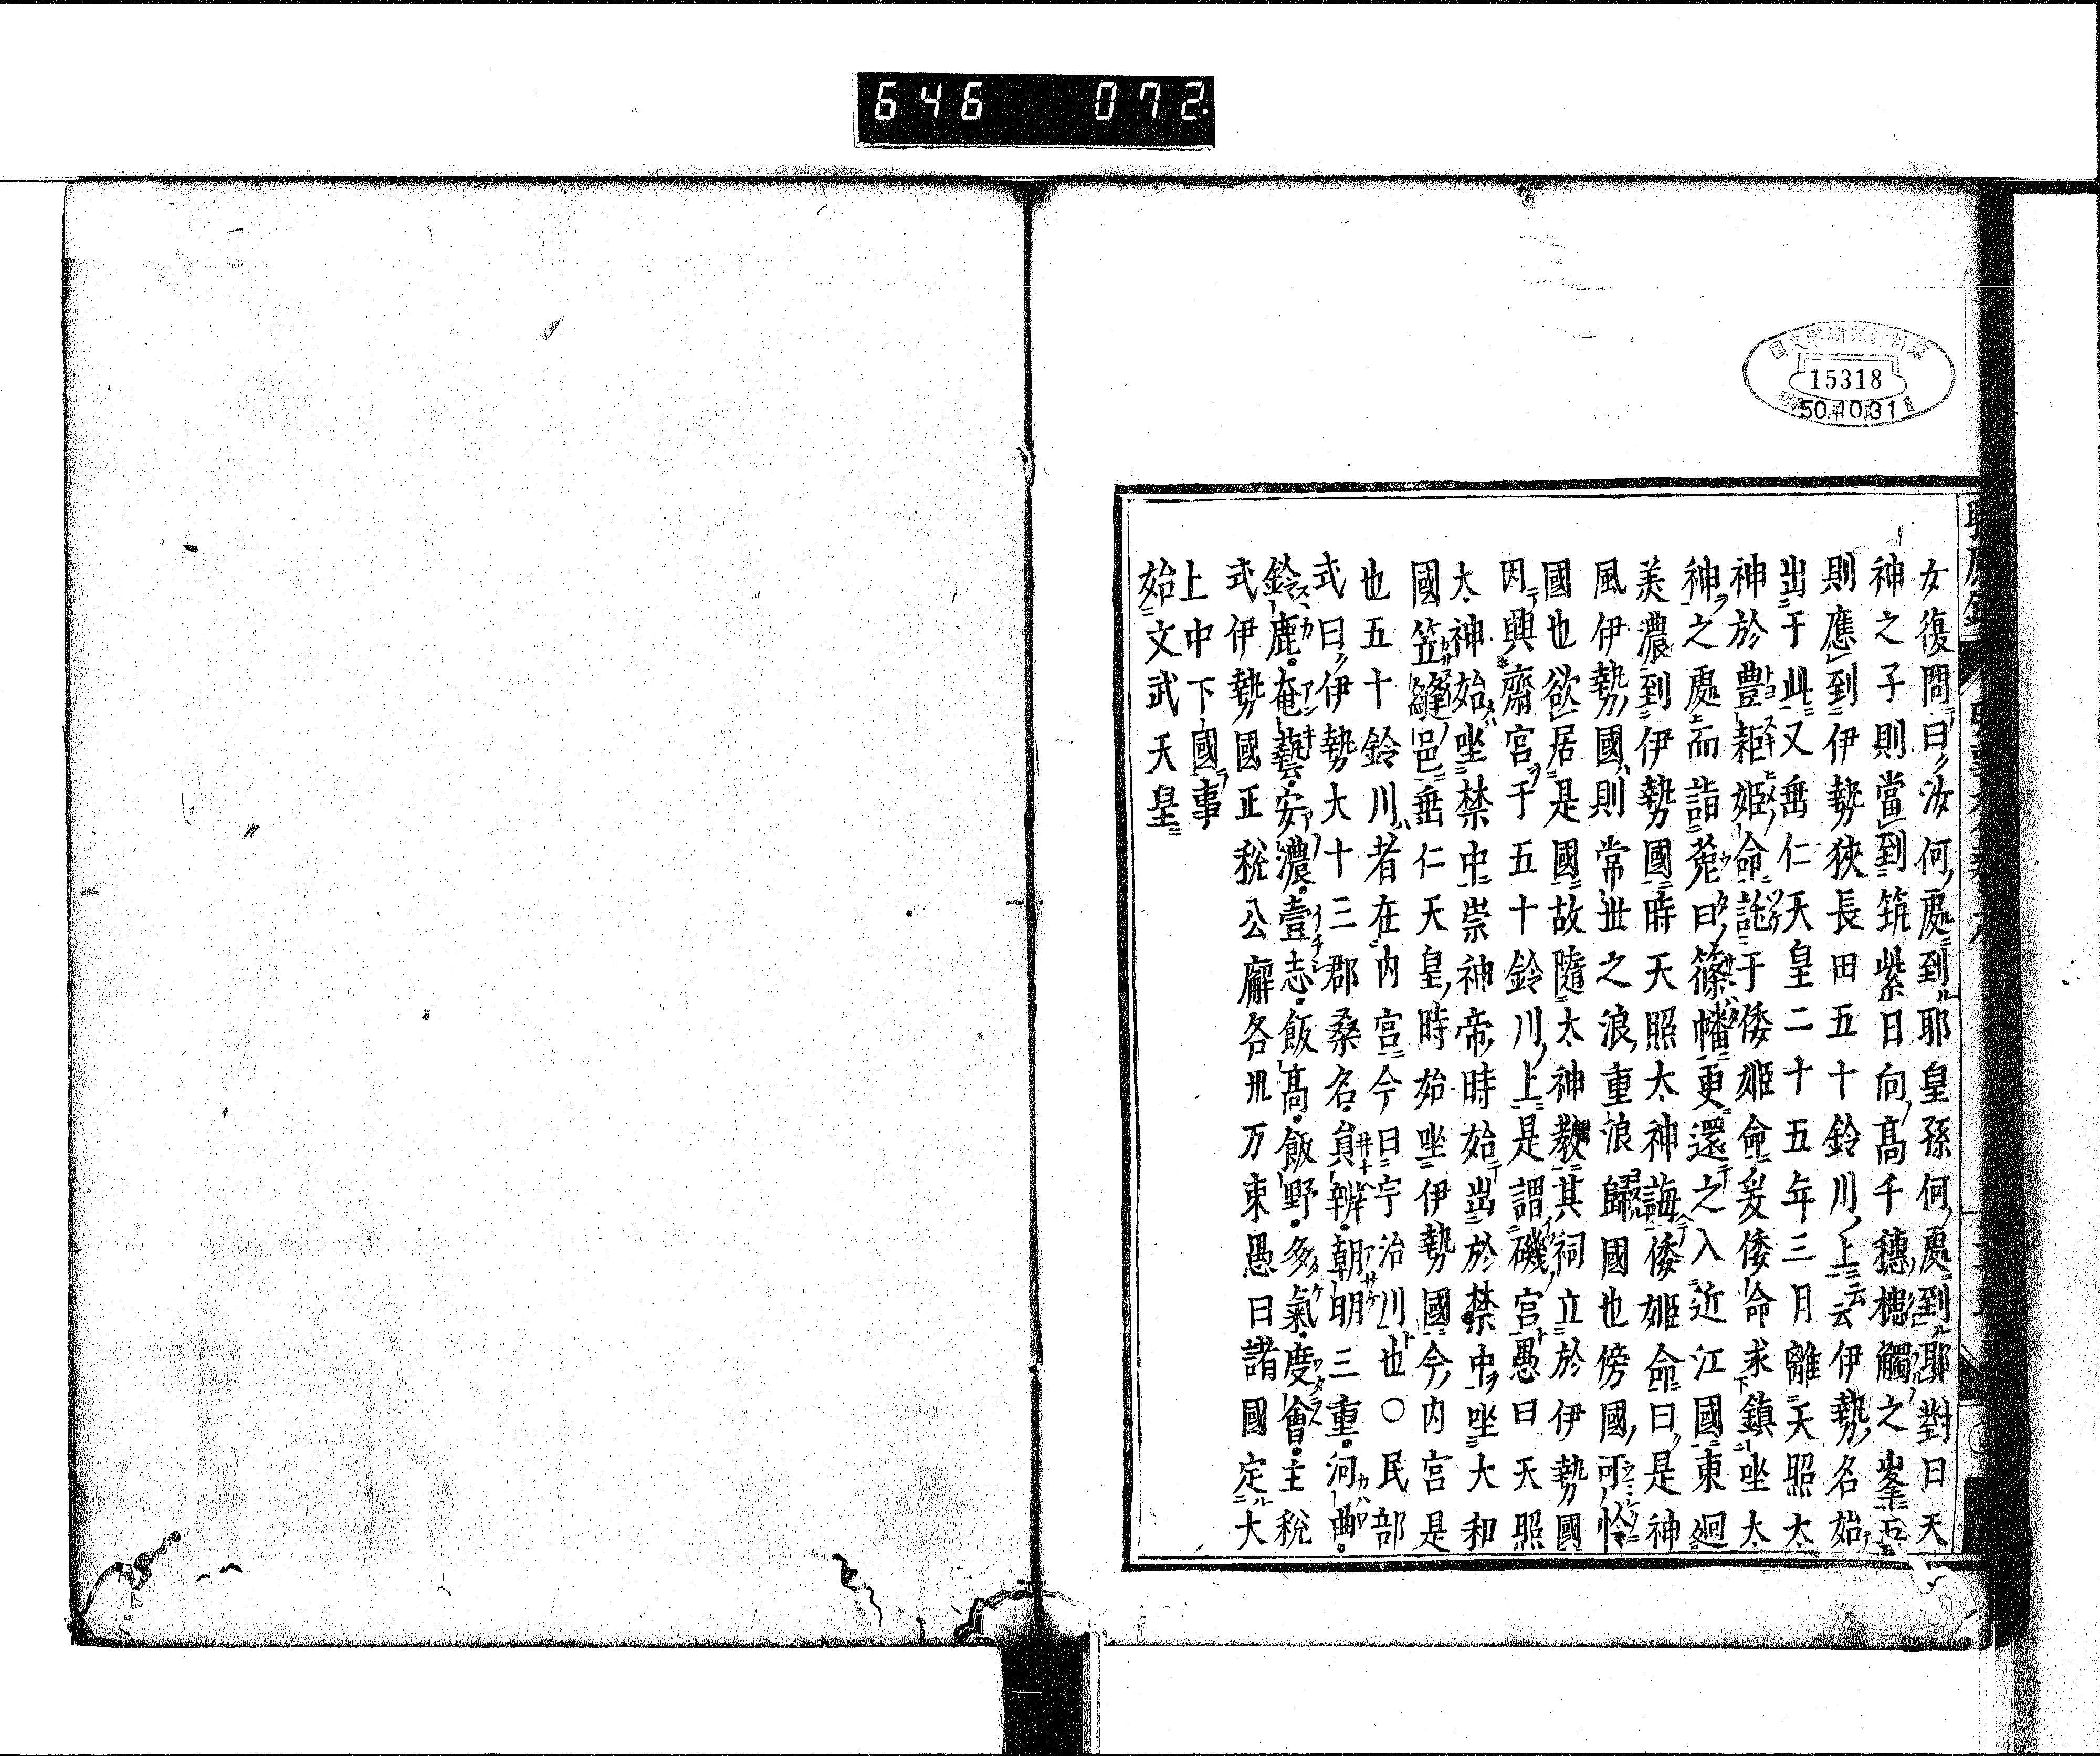 646 072
15318
50.10.31
女復問曰汝何處到耶皇孫何處到耶對曰天
神之子則當到筑紫日向高千穗槵觸之峯吾
則應到伊勢狹長田五十鈴川上云云伊勢名始
出于此又垂仁天皇二十五年三月離天照太
神於豊耜姬命託于倭姬命爰倭命求鎮坐太
神之處而詣菟田篠幡更還之入近江國東廻
美濃到伊勢國時天照太神誨倭姬命曰是神
風伊勢國則常世之浪重浪歸國也傍國可怜
國也欲居是國故隨太神教其祠立於伊勢國
因興齋宮于五十鈴川上是謂磯宮愚曰天照
太神始坐禁中崇神帝時始出於禁中坐大和
國笠縫邑垂仁天皇時始坐伊勢國今內宮是
也五十鈴川者在內宮今曰宇治川也○民部
式曰伊勢大十三郡桑名員辨朝明三重河曲
鈴鹿奄藝安濃壹志飯高飯野多氣度會主稅
式伊勢國正稅公廨各卅万束愚曰諸國定大
上中下國事
始文武天皇